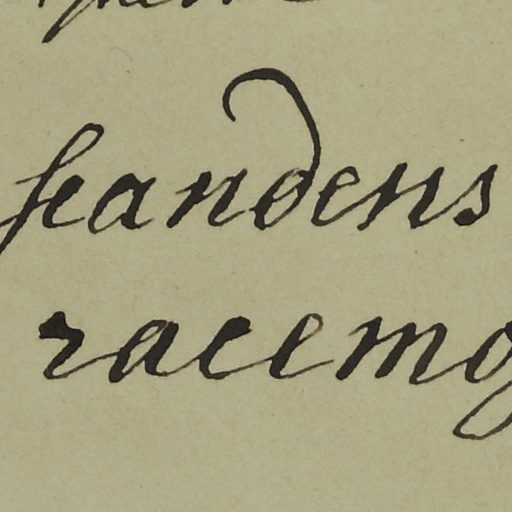 scandens
racemo